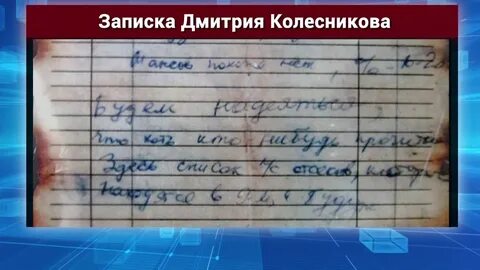 Записка Дмитрия Колесникова
Шансов похоже нет, % 10-20
Будем надеяться,
что хоть кто нибудь прочитает
Здесь список л/с отсеков, которые
находятся в 9-м и будут